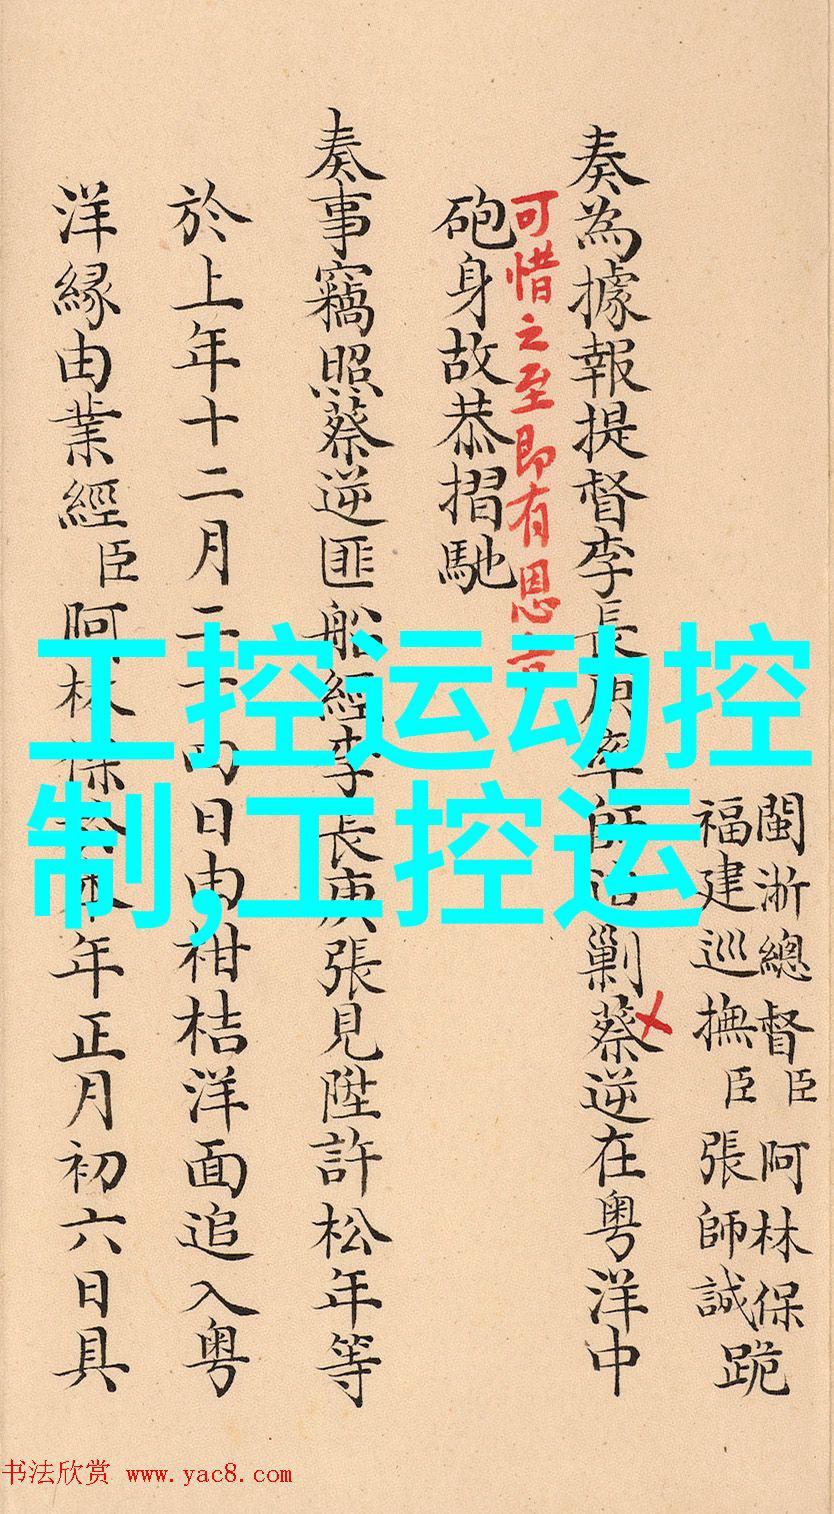 閩浙總督臣阿林保
福建巡撫臣張師誠跪
奏為據報提督李長庚率師追剿蔡逆在粤洋中
可惜之至即有恩旨
砲身故恭摺馳
奏事竊照蔡逆匪船經李長庚張見陞許松年等
於上年十二月二十日由柑桔洋面追入粤
洋縁由業經臣阿林保於本年正月初六日具
工控运动控
制,工控运
书法欣赏 www.yac8.com